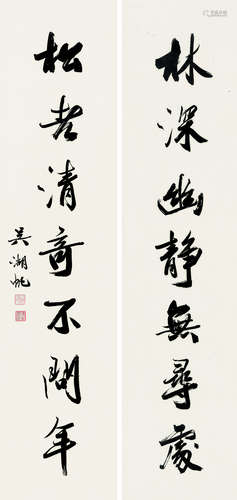 林深幽靜無尋處
松老清奇不問年
吳湖帆